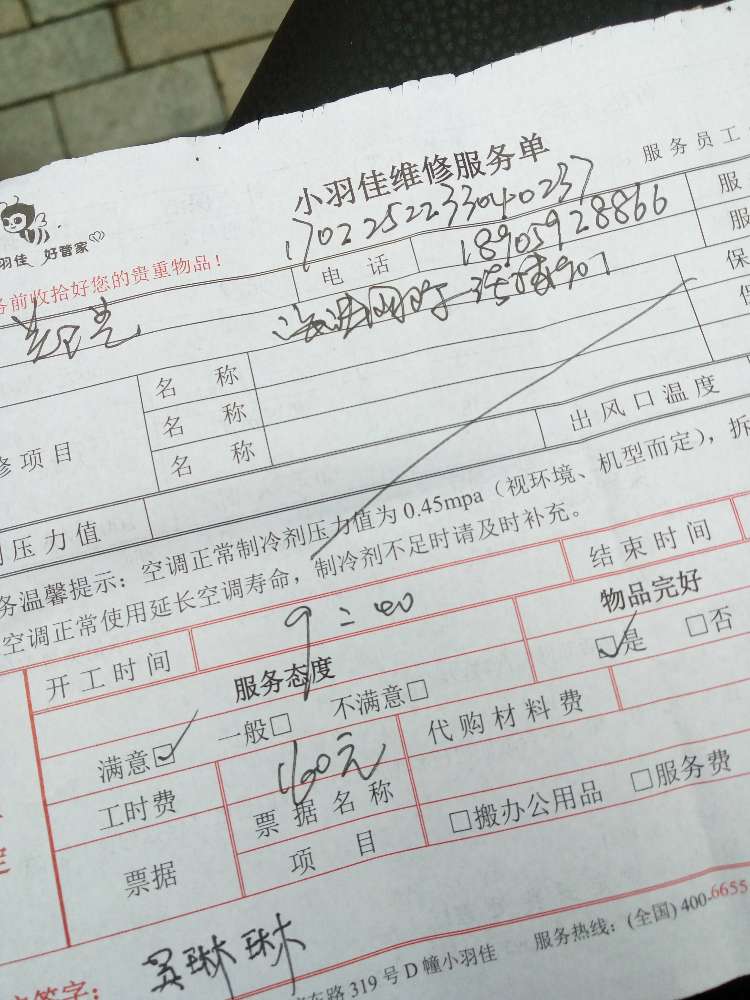 小羽佳维修服务单
服务员工
1702252233040237
羽佳 好管家
电 话
18905928866
服
服
务前收拾好您的贵重物品！
保
修项目
名 称
名 称
名 称
出风口温度
压力值
务温馨提示：空调正常制冷剂压力值为 0.45mpa（视环境、机型而定），拆
空调正常使用延长空调寿命，制冷剂不足时请及时补充。
开工时间
9:00
结束时间
服务态度
物品完好
满意☑ 一般□ 不满意□
☑是 □否
工时费
160元
代购材料费
票据
票据名称
项 目
□搬办公用品 □服务费
签字：
吴琳琳
东路 319 号 D 幢小羽佳 服务热线：(全国) 400-6655